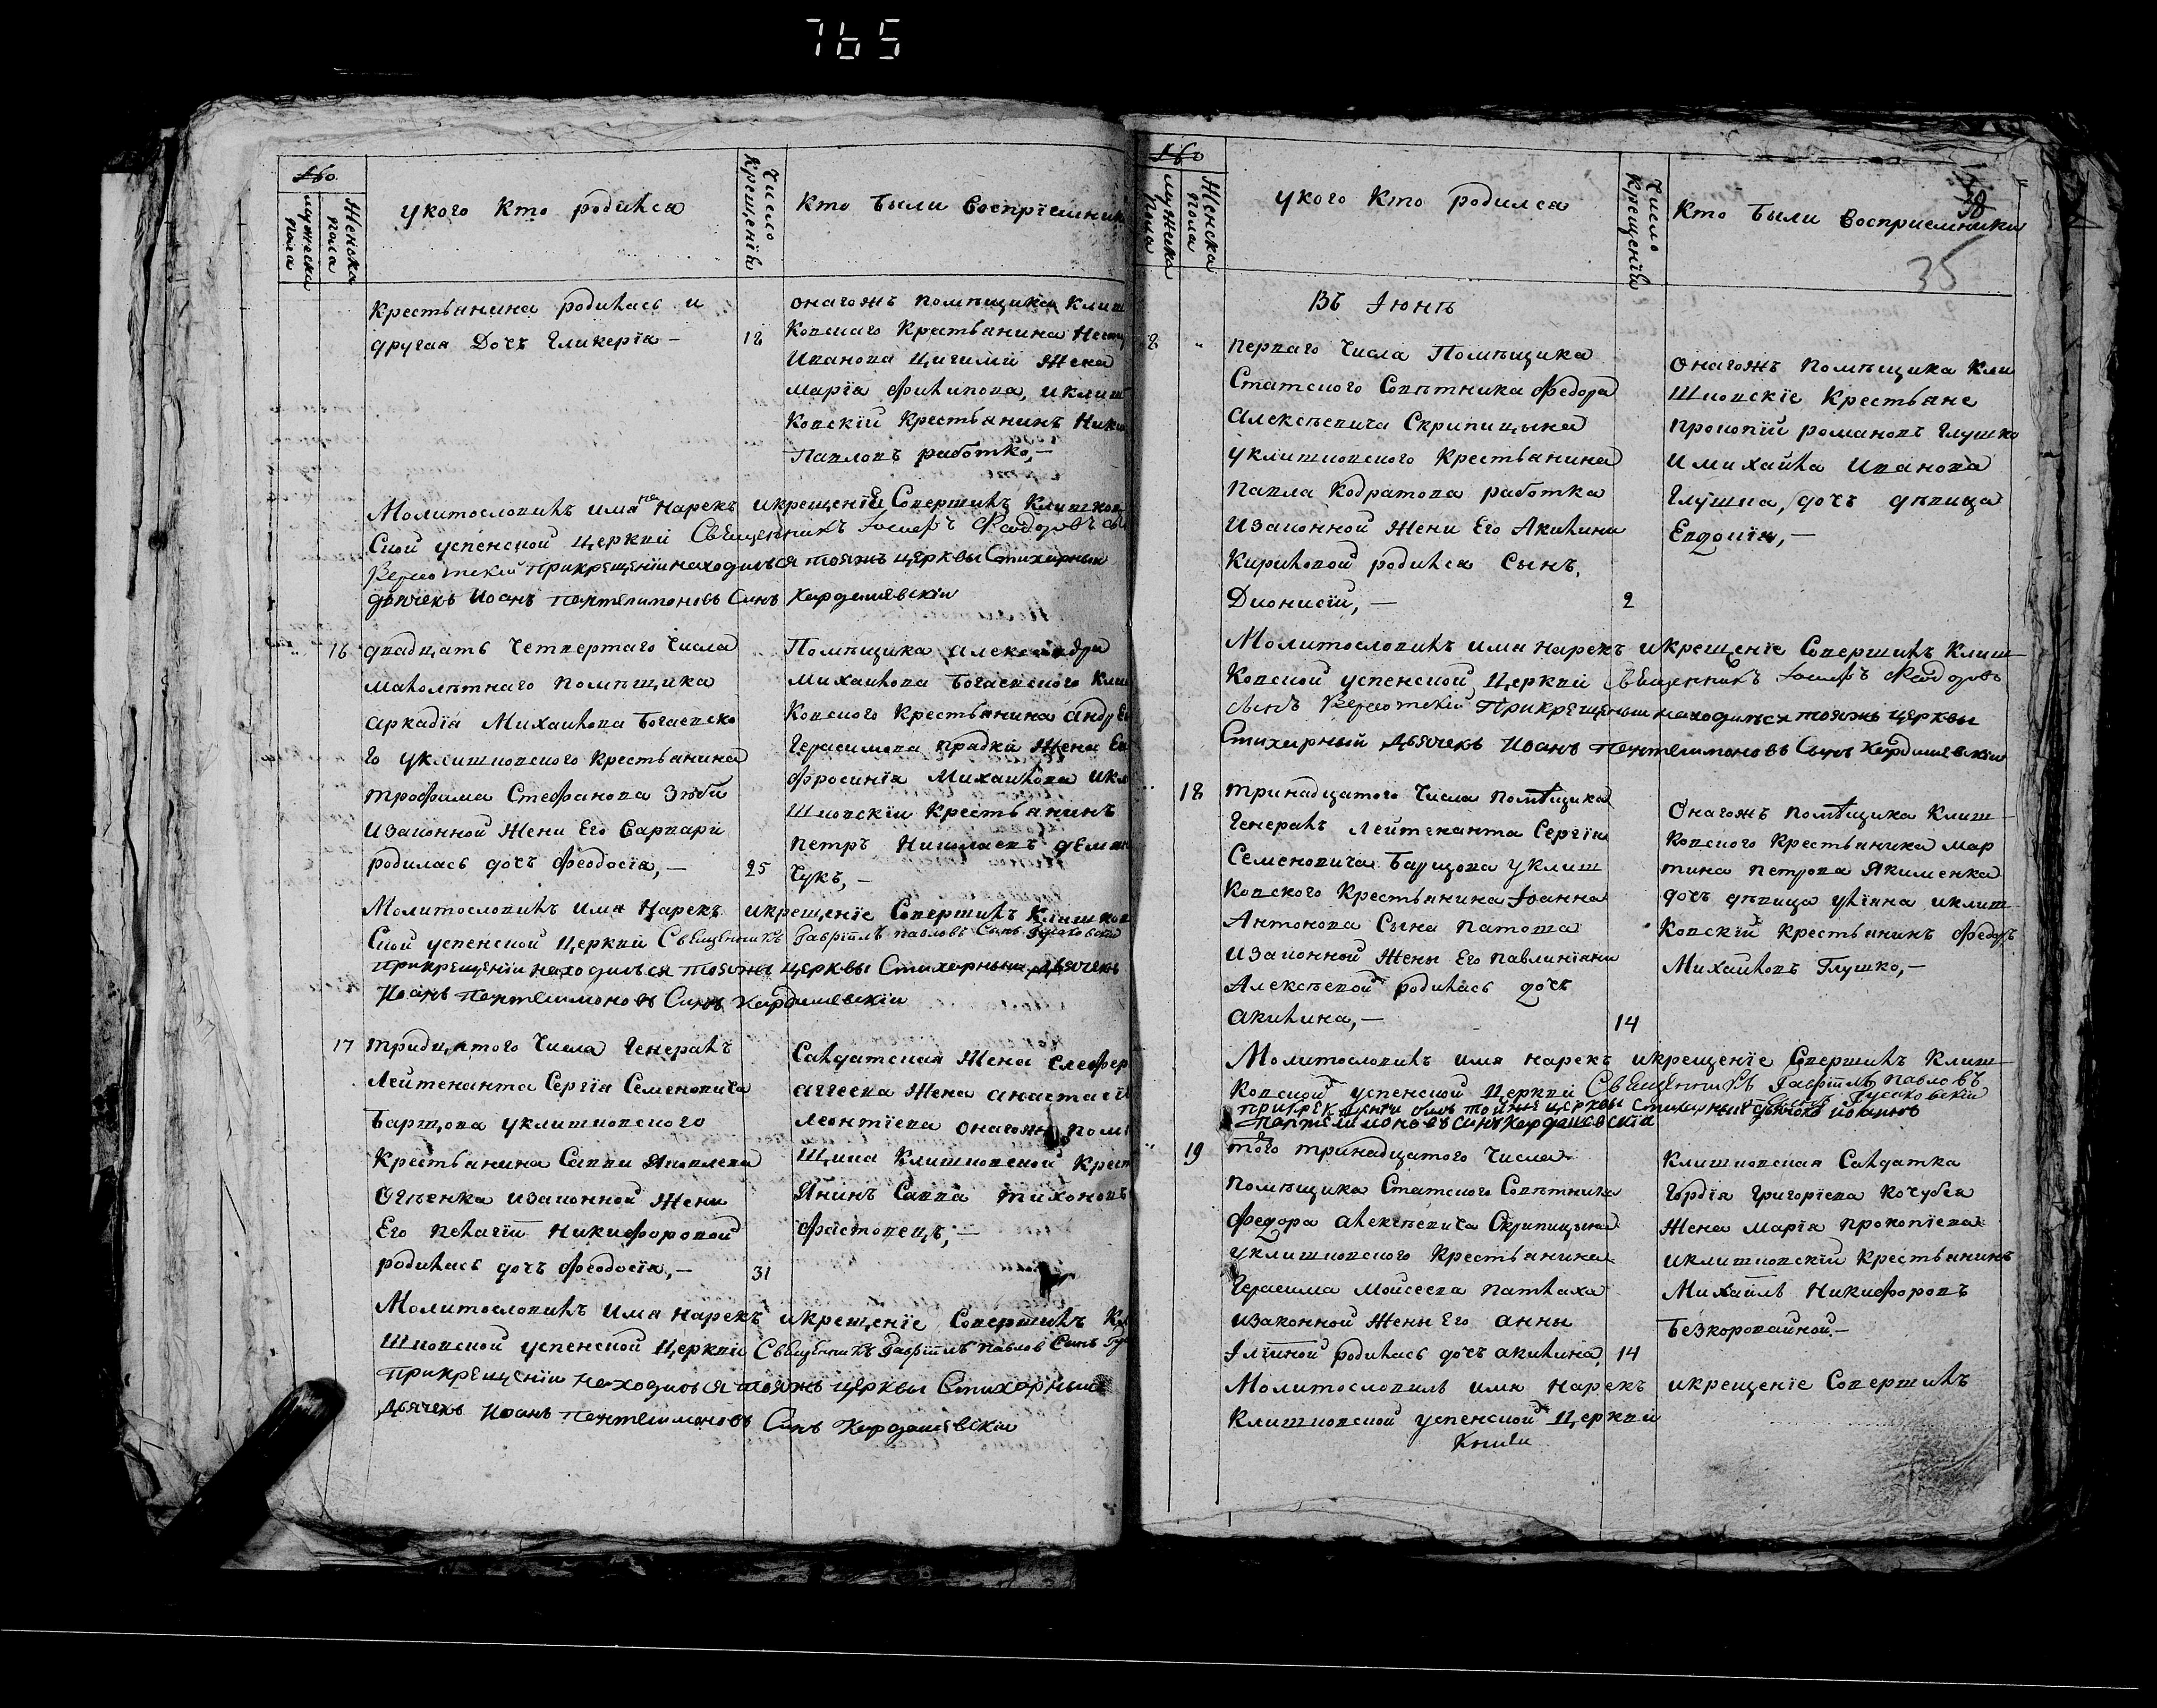 765
№о
мужеска пола
Женска пола
укого кто родился
Число Крещеній
Кто были восприемник
крестьянина родилась и
другая Дочъ Гликерія — 18
онагожъ помѣщика Клиш
ковскаго Крестьянина Нест
Иванова Цигими Жена
марія Филипова, иклиш
ковскій Крестьянинъ Ники
Павловъ работко, —
Молитвословилъ имя Нарекъ икрещеніе Совершилъ Клишков
ской успенской церкви Священникъ Іосифъ Федоровъ
прикрещеніи находился тояжъ церквы Стихарный
дьячекъ Иоанъ пантелимоновъ Синъ Кардашевскій
16 двадцать Четвертаго Числа
малолѣтнаго помѣщика
аркадія Михаилова Богаевско
го уклишковского крестьянина
трофима Стефанова Зюби
изаконной Жени Его Варвари
родилась дочъ Феодосія, — 25
Помѣщика александра
михаилова Богаевского Кли
ковского крестьянина андре
Герасимова прадки Жена Ев
фросинія Михаилова икл
шковскіи Крестьянинъ
петръ Николаевъ демян
чукъ, —
Молитвословилъ имя Нарекъ икрещеніе Совершилъ Клишков
ской успенской церкви Священникъ Гавріилъ павловъ Синъ Гусаковскій
прикрещеніи находился тояжъ церквы Стихарный Дьячекъ
Иоанъ пантелимоновъ Синъ Кардашевскіи
17 тридцятого Числа Генералъ
Лейтенанта Сергія Семеновича
Барщова уклишковского
Крестьянина Саввы Яковлева
Огіенка изаконной Жени
Его пелагіи Никифоровой
родилась дочъ Феодосія, — 31
Салдатская Жена Елефер
аггеева Жена анастасія
леонтіева онагожъ помѣ
щика Клишковской Крест
янинъ Савва тихоновъ
фастовецъ, —
Молитвословилъ имя нарекъ икрещеніе Совершилъ Кли
шковской успенской церкви Священникъ Гавріилъ павлов Синъ Гус
прикрещеніи находился тояжъ церквы Стихарный
Дьячекъ Иоанъ пантелимоновъ Синъ Кардашевскіи
№о
мужеска пола
Женска пола
укого кто родился
Число Крещеній
Кто были восприемники
38
35
Въ Іюнѣ
8 перваго Числа Помѣщика
Статского Совѣтника Федора
Алексѣевича Скрипицына
уклишковского Крестьянина
Павла Кодратова работка
изаконной Жени Его Акилини
Кириловой родился Сынъ
Дионисій, — 2
Онагожъ помѣщика Кли
шковскіе Крестьяне
прокопій романовъ Глушко
и михаила Иванова
Глушка, дочъ дѣвица
Евдокія, —
Молитвословилъ имя нарекъ икрещеніе Совершилъ Клиш
ковской успенской церкви Священникъ Іосифъ Федоровъ
сынъ прикрещеніи находился тояжъ церквы
Стихарный Дьячекъ Иоанъ Пантелимоновъ Синъ Кардашевскіи
18 тринадцатого Числа помѣщика
Генералъ Лейтенанта Сергія
Семеновича Барщова уклиш
ковского Крестьянина Іоанна
Антонова Сына Патоша
изаконной Жены Его павлиніани
Алексѣевой родилась дочъ
акилина, — 14
Онагожъ помѣщика Клиш
ковского Крестьянина мар
тина петрова Якименка
дочъ дѣвица уліяна иклиш
ковскій Крестьянинъ Федоръ
Михаиловъ Глушко, —
Молитвословилъ имя нарекъ икрещеніе Совершилъ Клиш
ковской успенской церкви Священникъ Гавріилъ павловъ
Гусаковскій
прикрещеніи билъ тойже церквы стихарный дьячокъ иоаннъ
пантелимоновъ синъ Кардашевскій
19 того тринадцатого Числа
помѣщика Статского Совѣтника
Федора алексѣевича Скрипицына
уклишковского Крестьянина
Герасима Мойсеева Патлаха
изаконной Жены Его анны
Іліиной родилась дочъ акилина, 14
Клишковская Салдатка
Гордія Григоріева Кочубея
Жена марія прокопіева
иклишковскій Крестьянинъ
Михаилъ Никифоровъ
Безкоровайной. —
Молитвословилъ имя Нарекъ икрещеніе Совершилъ
Клишковской успенской церкви